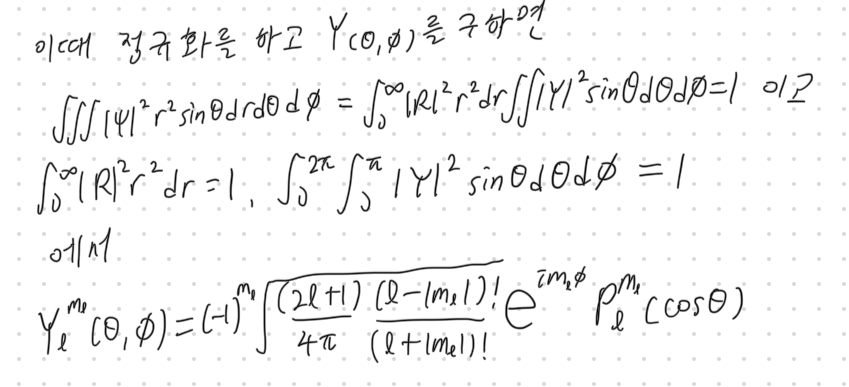 이때 정규화를 하고 Y(θ,ϕ)를 구하면
∭|Ψ|²r²sinθdrdθdϕ = ∫₀^∞|R|²r²dr∬|Y|²sinθdθdϕ=1 이고
∫₀^∞|R|²r²dr=1, ∫₀^{2π}∫₀^π|Y|²sinθdθdϕ = 1
에서
Y_ℓ^{m_ℓ}(θ,ϕ)=(-1)^{m_ℓ}√((2ℓ+1)/4π (ℓ-|m_ℓ|)!/(ℓ+|m_ℓ|)!) e^{im_ℓϕ} P_ℓ^{m_ℓ}(cosθ)